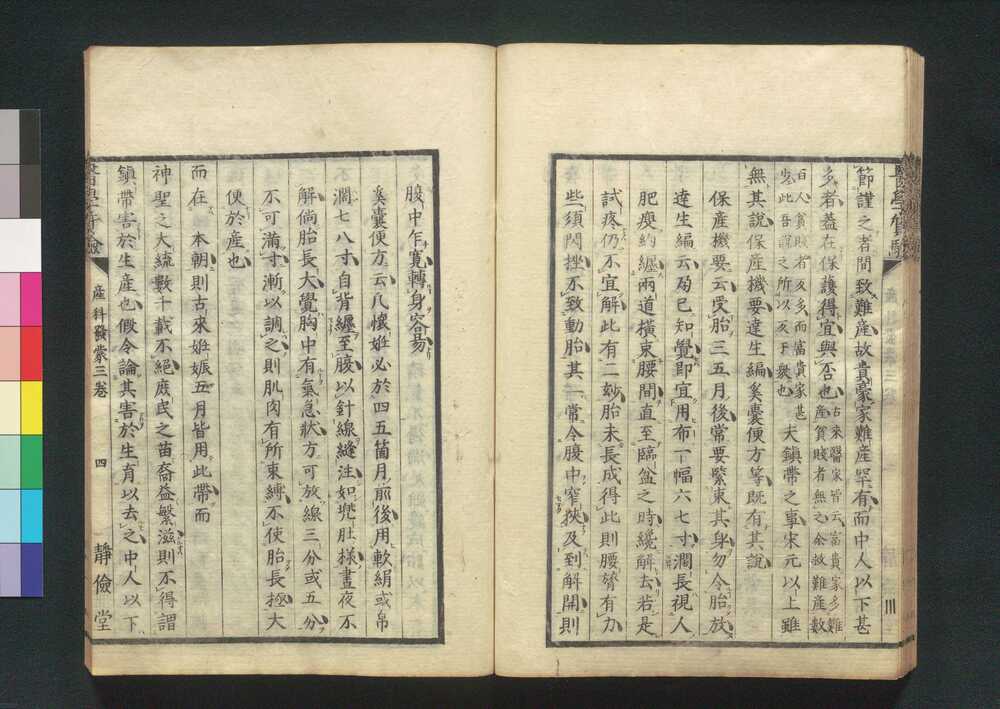 節謹之者間致難產故貴豪家難產罕有而中人以下甚
多者蓋在保護得宜與否也古來醫家皆云富貴家多難
產貧賤者無之余故難產數
百人貧賤者反多而富貴家甚
少此吾謂之所以反于衆也
夫鎮帶之事宋元以上雖
無其說保產機要達生編奚囊便方等既有其說
保產機要云受胎三五月後常要緊束其身勿令胎放
達生編云鳬已知覺即宜用布一幅六七寸濶長視人
肥瘦約纏兩道橫束腰間直至臨盆之時纔解去若是
試疼仍不宜解此有二妙胎未長成得此則腰膂有力
些須閃挫不致動胎其一常令腹中窄狹及到解開則
腹中乍寬轉身容易
奚囊便方云凡懷姙必於四五箇月前後用軟絹或帛
濶七八寸自背纏至腹以針線縫注如兜肚樣晝夜不
解倘胎長大覺胸中有氣急狀方可放線三分或五分
不可滿寸漸以調之則肌肉有所束縛不使胎長極大
便於產也
而在　本朝則古來姙娠五月皆用此帶而
神聖之大統數千載不絕庶民之苗裔益繁滋則不得謂
鎮帶害於生產也假令論其害於生育以去之中人以下
產科發蒙三卷
四
靜儉堂